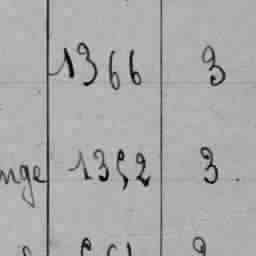 1366 3
nge 1352 3.